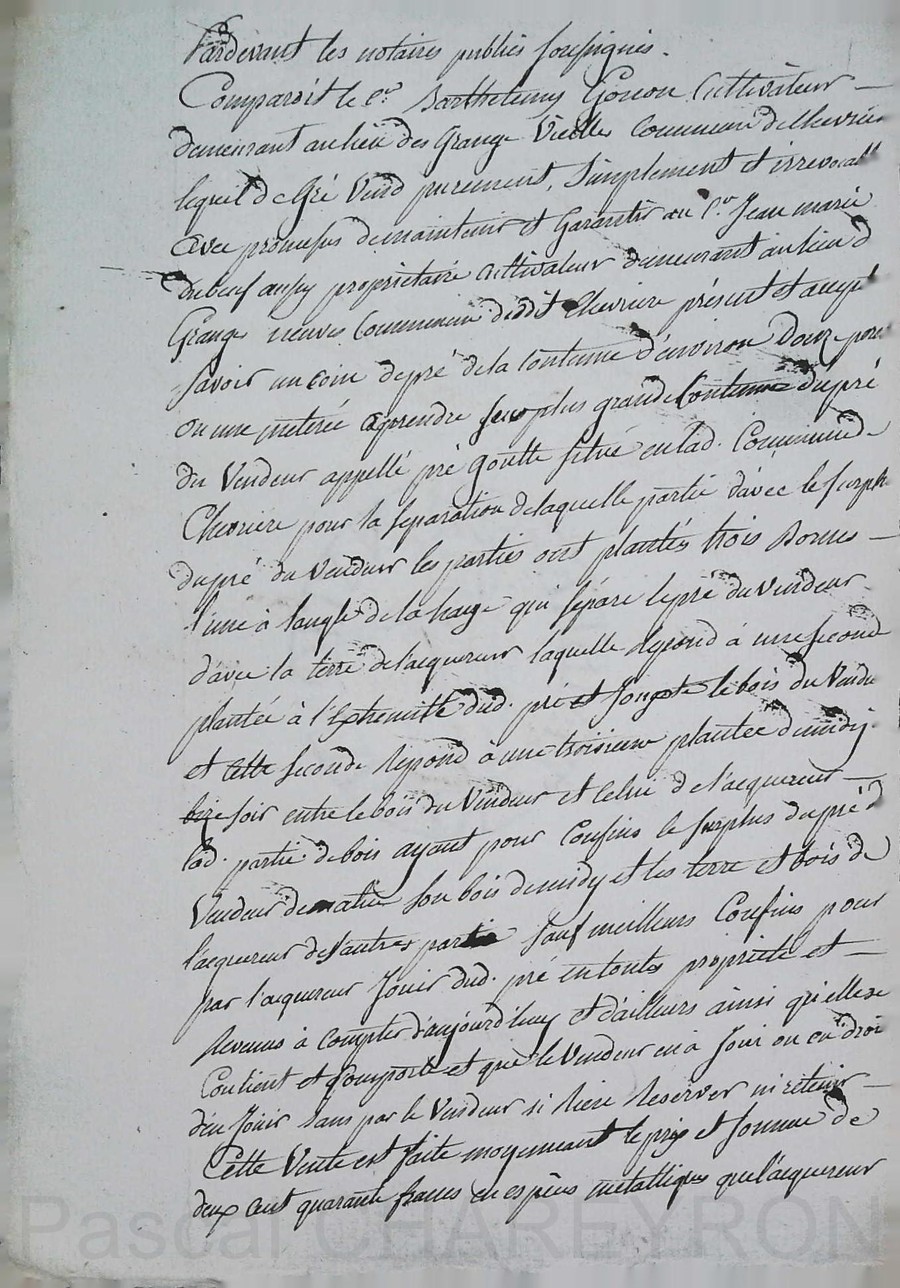 Pardevant les notaires publics soussignés.
Comparoit le Cn. Barthelemy Gonon Cultivateur
demeurant au lieu des Grange Vieilles Commune de Chevrieres
lequel de Gré Vend purement, Simplement et irrevocabt
avec promesses de maintenir et Garantir au Cn Jean marie
dubeuf aussy proprietaire cultivateur demeurant au lieu d
Granges neuves Commune dudit Chevriere présent et accept
Savoir un coin de pré de la Contenue d'environ Douze
ou une meterée a prendre sur plus grande Contenue du pré
du Vendeur appellé pré goutte Situé en lad. Commune d
Chevriere pour la Separation de laquelle partie d'avec le surplus
du pré du Vendeur les parties ont plantés trois Bornes
l'une à l'angle de la haye qui sépare le pré du Vendeur
d'avec la terre de l'acquereur laquelle repond à une seconde
plantée à l'Extremité dud. pré et le bois du Vende
et Cette Seconde repond a une troisieme plantée de midy
bize soir entre le bois du Vendeur et Celui de l'acquereur
lad. partie de bois ayant pour Confins le surplus du pré d
Vendeur de matin Son bois de midy et les terre et bois de
l'acquereur des autres parties Sauf meilleurs Confins pour
par l'acquereur Jouir dud. pré en toute proprieté et
Revenus à compter d'aujourd'huy et d'ailleurs ainsi qu'elle se
Contient et Comporte et que le Vendeur en a Joui ou eu droit
d'en Jouir Sans par le Vendeur si Rien Reserver ni retenir
Cette Vente est faite moyennant le prix et somme de
deux cent quarante francs en espèces métalliques que l'acquereur
Pascal CHAREYRON